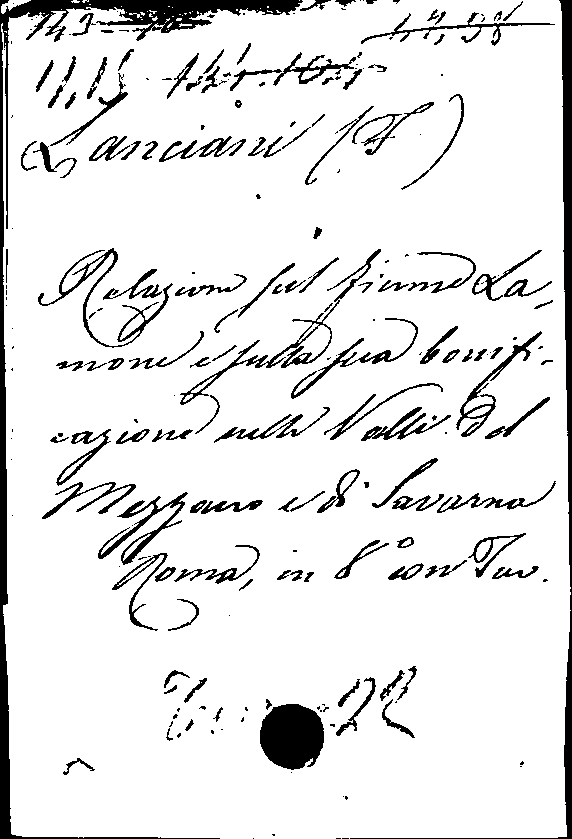 143 - 10 47, 38
11,15
Lanciani (F)
Relazione sul fiume La-
mone e sulla sua bonifi-
cazione nelle Valli del
Mezzano e di Savarna
Roma, in 8° con Tav.
22